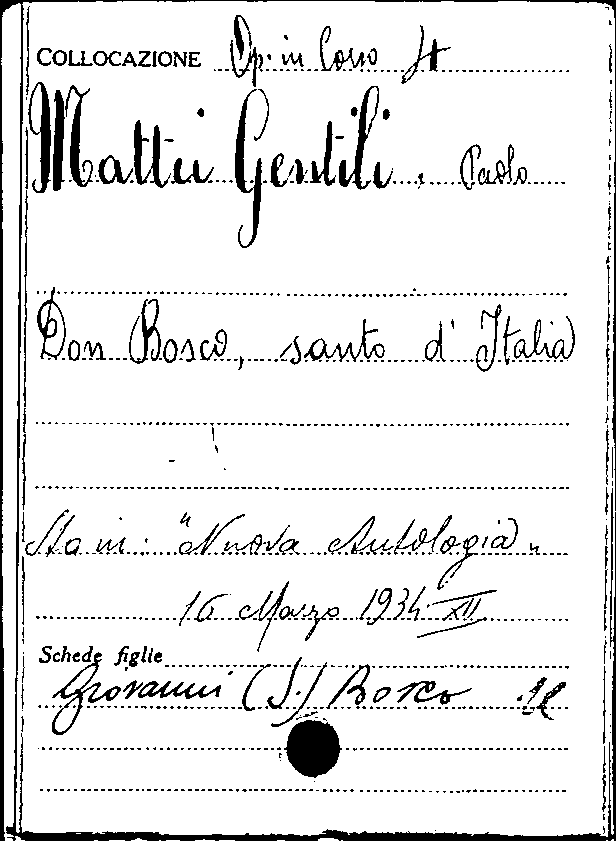 COLLOCAZIONE Op. in Corso It
Mattei Gentili. Paolo
Don Bosco, santo d'Italia
Sta in: "Nuova Antologia"
16 Marzo 1934-XII
Schede figlie
Giovanni (S.) Bosco